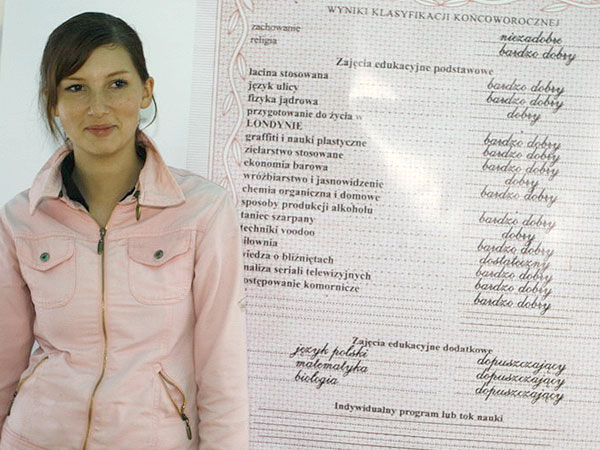 WYNIKI KLASYFIKACJI KOŃCOWOROCZNEJ
zachowanie niezadobre
religia bardzo dobry
Zajęcia edukacyjne podstawowe
łacina stosowana bardzo dobry
język ulicy bardzo dobry
fizyka jądrowa dobry
przygotowanie do życia w
LONDYNIE bardzo dobry
graffiti i nauki plastyczne bardzo dobry
zielarstwo stosowane bardzo dobry
ekonomia barowa dobry
wróżbiarstwo i jasnowidzenie bardzo dobry
chemia organiczna i domowe
sposoby produkcji alkoholu bardzo dobry
taniec szarpany dobry
techniki voodoo bardzo dobry
iłownia dostateczny
iedza o bliźniętach bardzo dobry
naliza seriali telewizyjnych bardzo dobry
ostępowanie komornicze bardzo dobry
Zajęcia edukacyjne dodatkowe
język polski dopuszczający
matematyka dopuszczający
biologia dopuszczający
Indywidualny program lub tok nauki